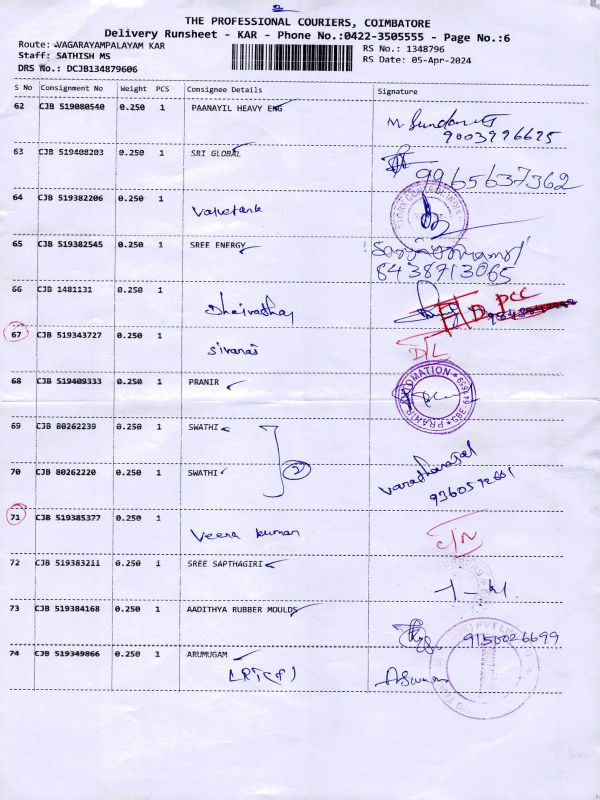 THE PROFESSIONAL COURIERS, COIMBATORE
Delivery Runsheet - KAR - Phone No.:0422-3505555 - Page No.:6
Route: VAGARAYAMPALAYAM KAR
RS No.: 1348796
Staff: SATHISH MS
RS Date: 05-Apr-2024
DRS No.: DCJB134879606
S No Consignment No Weight PCS Consignee Details Signature
62 CJB 519080540 0.250 1 PAANAYIL HEAVY ENG
9003996625
63 CJB 519408203 0.250 1 SRI GLOBAL
9965637362
64 CJB 519382206 0.250 1
65 CJB 519382545 0.250 1 SREE ENERGY
8438713065
66 CJB 1481131 0.250 1
PCC
67 CJB 519343727 0.250 1 Sivaraj
D/L
68 CJB 519409333 0.250 1 PRANIR
69 CJB 80262239 0.250 1 SWATHI
2
70 CJB 80262220 0.250 1 SWATHI
Varatharajal
71 CJB 519385377 0.250 1 Veera kumar
C/N
72 CJB 519383211 0.250 1 SREE SAPTHAGIRI
73 CJB 519384168 0.250 1 AADITHYA RUBBER MOULDS
9150026699
74 CJB 519349866 0.250 1 ARUMUGAM